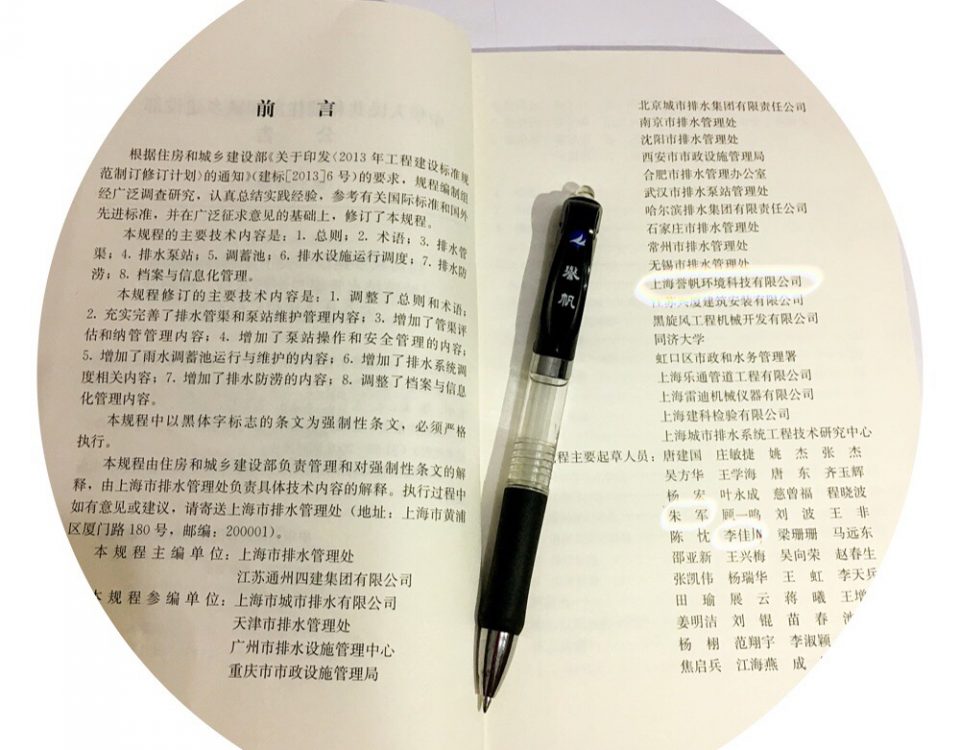 前 言
根据住房和城乡建设部《关于印发〈2013 年工程建设标准规
范制订修订计划〉的通知》(建标[2013]6 号)的要求，规程编制组
经广泛调查研究，认真总结实践经验，参考有关国际标准和国外
先进标准，并在广泛征求意见的基础上，修订了本规程。
本规程的主要技术内容是：1. 总则；2. 术语；3. 排水管
渠；4. 排水泵站；5. 调蓄池；6. 排水设施运行调度；7. 排水防
涝；8. 档案与信息化管理。
本规程修订的主要技术内容是：1. 调整了总则和术语；
2. 充实完善了排水管渠和泵站维护管理内容；3. 增加了管渠评
估和纳管管理内容；4. 增加了泵站操作和安全管理的内容；
5. 增加了雨水调蓄池运行与维护的内容；6. 增加了排水系统调
度相关内容；7. 增加了排水防涝的内容；8. 调整了档案与信息
化管理内容。
本规程中以黑体字标志的条文为强制性条文，必须严格
执行。
本规程由住房和城乡建设部负责管理和对强制性条文的解
释，由上海市排水管理处负责具体技术内容的解释。执行过程中
如有意见或建议，请寄送上海市排水管理处（地址：上海市黄浦
区厦门路 180 号，邮编：200001）。
本规程主编单位：上海市排水管理处
江苏通州四建集团有限公司
本规程参编单位：上海市城市排水有限公司
天津市排水管理处
广州市排水设施管理中心
重庆市市政设施管理局
北京城市排水集团有限责任公司
南京市排水管理处
沈阳市排水管理处
西安市市政设施管理局
合肥市排水管理办公室
武汉市排水泵站管理处
哈尔滨排水集团有限责任公司
石家庄市排水管理处
常州市排水管理处
无锡市排水管理处
上海誉帆环境科技有限公司
江苏兴厦建筑安装有限公司
黑旋风工程机械开发有限公司
同济大学
虹口区市政和水务管理署
上海乐通管道工程有限公司
上海雷迪机械仪器有限公司
上海建科检验有限公司
上海城市排水系统工程技术研究中心
程主要起草人员：唐建国 庄敏捷 姚 杰 张 杰
吴方华 王学海 唐 东 齐玉辉
杨 宏 叶永成 慈曾福 程晓波
朱 军 顾一鸣 刘 波 王 非
陈 忱 李佳川 梁珊珊 马远东
邵亚新 王兴梅 吴向荣 赵春生
张凯伟 杨瑞华 王 虹 李天兵
田 瑜 展 云 蒋 曦 王增
姜明洁 刘 锟 苗 春 池
杨 栩 范翔宇 李淑颖
焦启兵 江海燕 成
誉帆